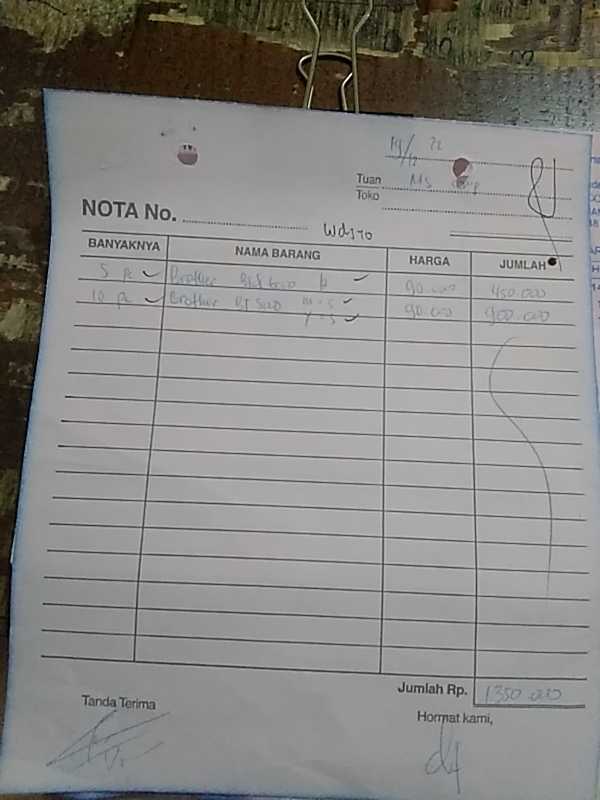 19/12 22
Tuan MS
Toko
NOTA No.
BANYAKNYA NAMA BARANG HARGA JUMLAH
5 pc Brother 90.000 450.000
10 pc Brother BT 5000 M = 5 90.000 900.000
Y = 5
Jumlah Rp. 1350.000
Tanda Terima Hormat kami,